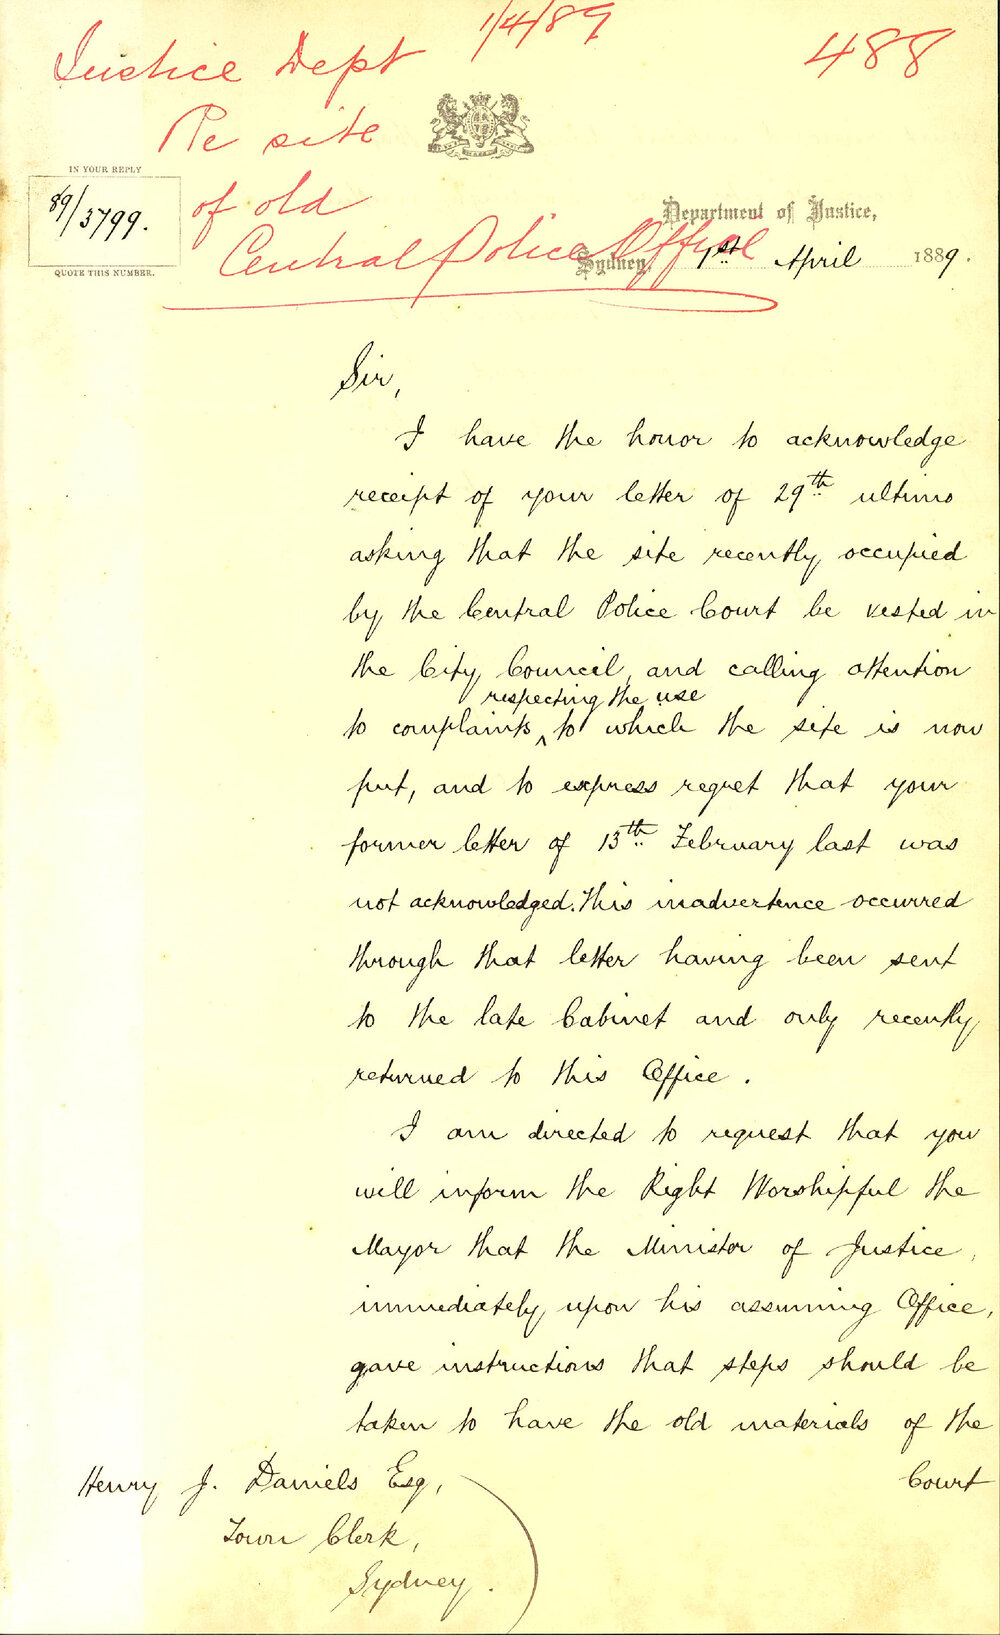 1/4/89
488
Justice Dept
Re site
of old
Central Police Office
IN YOUR REPLY
89/3799.
QUOTE THIS NUMBER.
Department of Justice,
Sydney, 1st April 1889.
Sir,
I have the honor to acknowledge
receipt of your letter of 29th ultimo
asking that the site recently occupied
by the Central Police Court be vested in
the City Council, and calling attention
respecting the use
to complaints ^ to which the site is now
put, and to express regret that your
former letter of 13th February last was
not acknowledged. This inadvertence occurred
through that letter having been sent
to the late Cabinet and only recently
returned to this Office.
I am directed to request that you
will inform the Right Worshipful the
Mayor that the Minister of Justice,
immediately upon his assuming Office,
gave instructions that steps should be
taken to have the old materials of the
Court
Henry J. Daniels Esq,
Town Clerk,
Sydney.